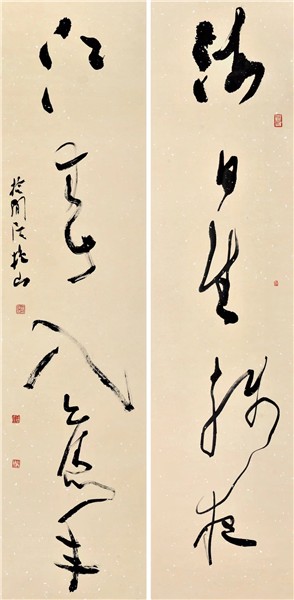 海日生残夜
江春入旧年